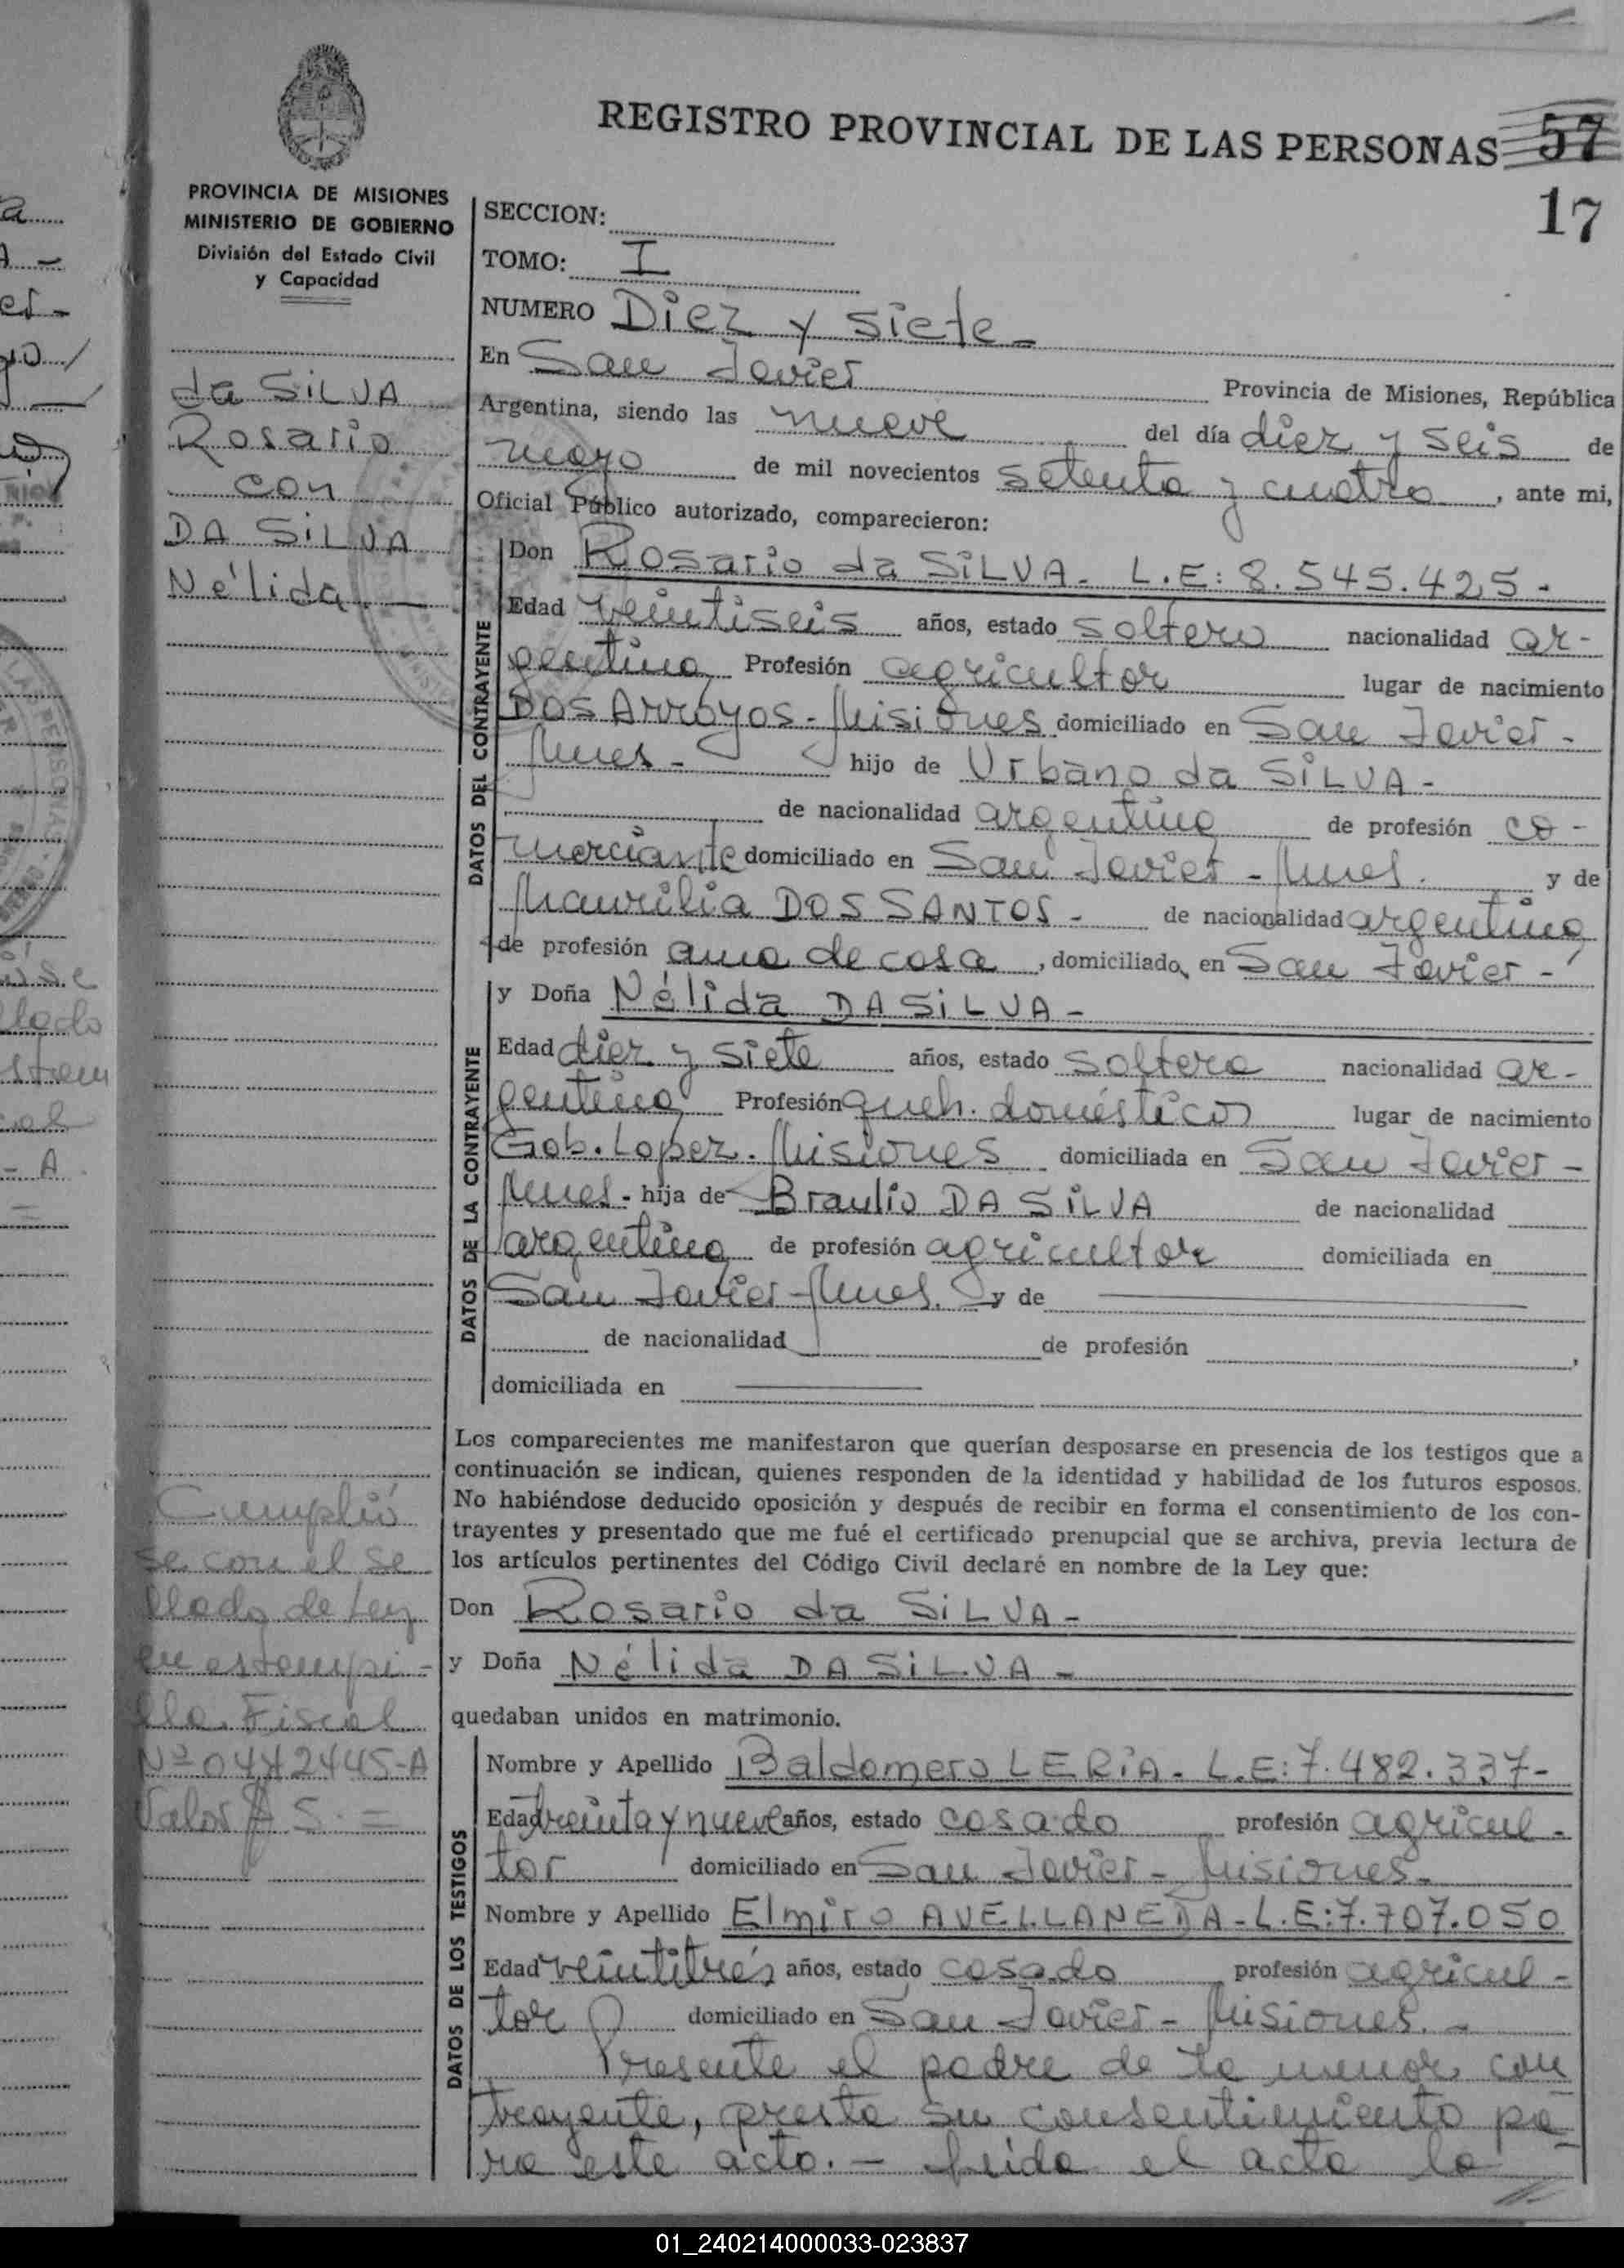 REGISTRO PROVINCIAL DE LAS PERSONAS 57
17
PROVINCIA DE MISIONES
MINISTERIO DE GOBIERNO
División del Estado Civil
y Capacidad
da SILVA
Rosario
con
DA SILVA
Nélida. —
SECCION:
TOMO: I
NUMERO Diez y siete -
En San Javier Provincia de Misiones, República
Argentina, siendo las nueve del día diez y seis de
mayo de mil novecientos setenta y cuatro, ante mi,
Oficial Público autorizado, comparecieron:
DATOS DEL CONTRAYENTE
Don Rosario da SILVA - L.E: 8.545.425 -
Edad veintiseis años, estado soltero nacionalidad ar-
gentina Profesión agricultor lugar de nacimiento
DOS Arroyos - Misiones domiciliado en San Javier -
Mnes - hijo de Urbano da SILVA -
de nacionalidad argentina de profesión co-
merciante domiciliado en San Javier - Mnes. y de
Maurilia DOS SANTOS - de nacionalidad argentina
de profesión ama de casa, domiciliado, en San Javier -
DATOS DE LA CONTRAYENTE
y Doña Nélida DA SILVA -
Edad diez y siete años, estado soltera nacionalidad ar-
gentina Profesión queh. domésticos lugar de nacimiento
Gob. Lopez. Misiones domiciliada en San Javier -
Mnes - hija de Braulio DA SILVA de nacionalidad
argentina de profesión agricultor domiciliada en
San Javier - Mnes. y de
de nacionalidad de profesión ,
domiciliada en
Los comparecientes me manifestaron que querían desposarse en presencia de los testigos que a
continuación se indican, quienes responden de la identidad y habilidad de los futuros esposos.
No habiéndose deducido oposición y después de recibir en forma el consentimiento de los con-
trayentes y presentado que me fué el certificado prenupcial que se archiva, previa lectura de
los artículos pertinentes del Código Civil declaré en nombre de la Ley que:
Don Rosario da SILVA -
y Doña Nélida DA SILVA -
quedaban unidos en matrimonio.
Cumplió
se con el se
llado de Ley
en estampi-
lla Fiscal
Nº 0442445-A
Valor $ 5. =
DATOS DE LOS TESTIGOS
Nombre y Apellido Baldomero LERIA - L.E: 7.482.337 -
Edad treinta y nueve años, estado casado profesión agricul-
tor domiciliado en San Javier - Misiones -
Nombre y Apellido Elmiro AVELLANEDA - L.E: 7.707.050
Edad veintitrés años, estado casado profesión agricul-
tor domiciliado en San Javier - Misiones. -
Presente el padre de la menor con
trayente, presta su consentimiento pa-
ra este acto. - Leida el acta la
01_240214000033-023837